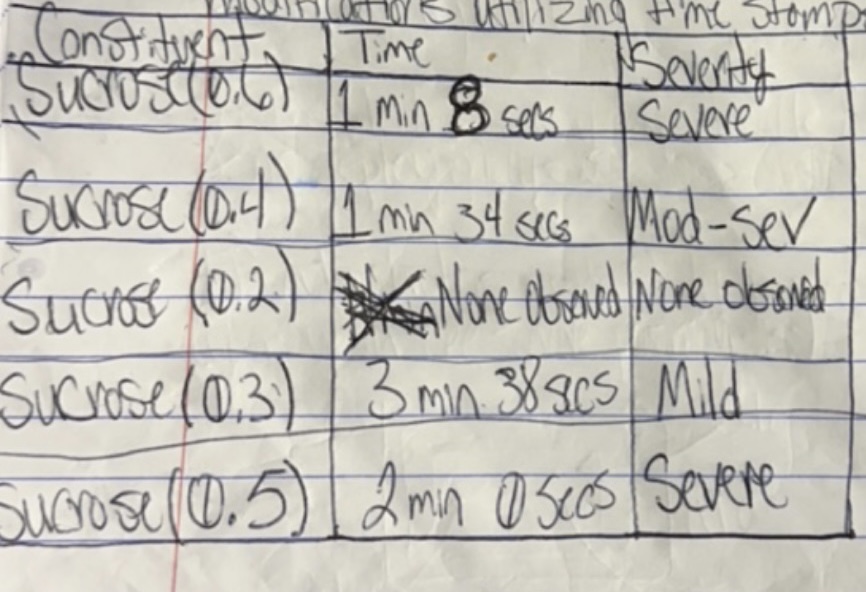 Modifications utilizing time stamp
Constituent Time Severity
Sucrose (0.6) 1 min 8 secs Severe
Sucrose (0.4) 1 min 34 secs Mod-Sev
Sucrose (0.2) None observed None observed
Sucrose (0.3) 3 min 38 secs Mild
Sucrose (0.5) 2 min 0 secs Severe